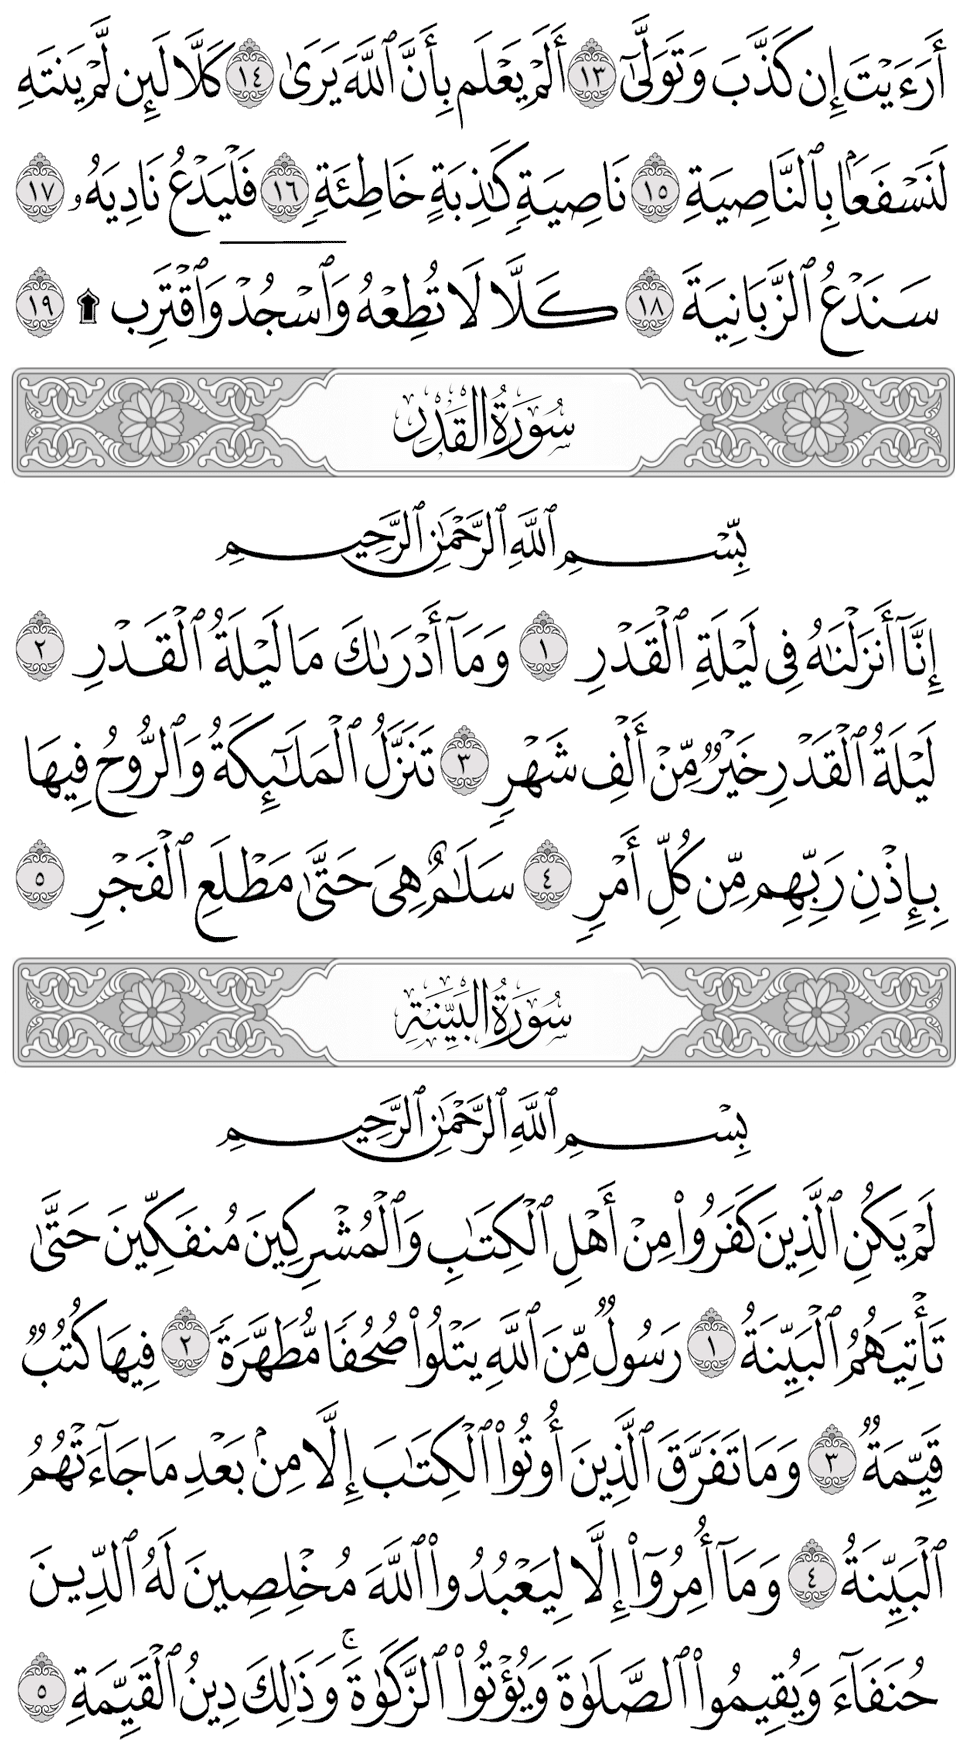 أَرَءَيۡتَ إِن كَذَّبَ وَتَوَلَّىٰٓ ١٣ أَلَمۡ يَعۡلَم بِأَنَّ ٱللَّهَ يَرَىٰ ١٤ كَلَّا لَئِن لَّمۡ يَنتَهِ
لَنَسۡفَعَۢا بِٱلنَّاصِيَةِ ١٥ نَاصِيَةٖ كَٰذِبَةٍ خَاطِئَةٖ ١٦ فَلۡيَدۡعُ نَادِيَهُۥ ١٧
سَنَدۡعُ ٱلزَّبَانِيَةَ ١٨ كَلَّا لَا تُطِعۡهُ وَٱسۡجُدۡ وَٱقۡتَرِب ۩ ١٩
سُورَةُ القَدۡرِ
بِسۡمِ ٱللَّهِ ٱلرَّحۡمَٰنِ ٱلرَّحِيمِ
إِنَّآ أَنزَلۡنَٰهُ فِي لَيۡلَةِ ٱلۡقَدۡرِ ١ وَمَآ أَدۡرَىٰكَ مَا لَيۡلَةُ ٱلۡقَدۡرِ ٢
لَيۡلَةُ ٱلۡقَدۡرِ خَيۡرٞ مِّنۡ أَلۡفِ شَهۡرٖ ٣ تَنَزَّلُ ٱلۡمَلَٰٓئِكَةُ وَٱلرُّوحُ فِيهَا
بِإِذۡنِ رَبِّهِم مِّن كُلِّ أَمۡرٖ ٤ سَلَٰمٌ هِيَ حَتَّىٰ مَطۡلَعِ ٱلۡفَجۡرِ ٥
سُورَةُ البَيِّنَةِ
بِسۡمِ ٱللَّهِ ٱلرَّحۡمَٰنِ ٱلرَّحِيمِ
لَمۡ يَكُنِ ٱلَّذِينَ كَفَرُواْ مِنۡ أَهۡلِ ٱلۡكِتَٰبِ وَٱلۡمُشۡرِكِينَ مُنفَكِّينَ حَتَّىٰ
تَأۡتِيَهُمُ ٱلۡبَيِّنَةُ ١ رَسُولٞ مِّنَ ٱللَّهِ يَتۡلُواْ صُحُفٗا مُّطَهَّرَةٗ ٢ فِيهَا كُتُبٞ
قَيِّمَةٞ ٣ وَمَا تَفَرَّقَ ٱلَّذِينَ أُوتُواْ ٱلۡكِتَٰبَ إِلَّا مِنۢ بَعۡدِ مَا جَآءَتۡهُمُ
ٱلۡبَيِّنَةُ ٤ وَمَآ أُمِرُوٓاْ إِلَّا لِيَعۡبُدُواْ ٱللَّهَ مُخۡلِصِينَ لَهُ ٱلدِّينَ
حُنَفَآءَ وَيُقِيمُواْ ٱلصَّلَوٰةَ وَيُؤۡتُواْ ٱلزَّكَوٰةَۚ وَذَٰلِكَ دِينُ ٱلۡقَيِّمَةِ ٥